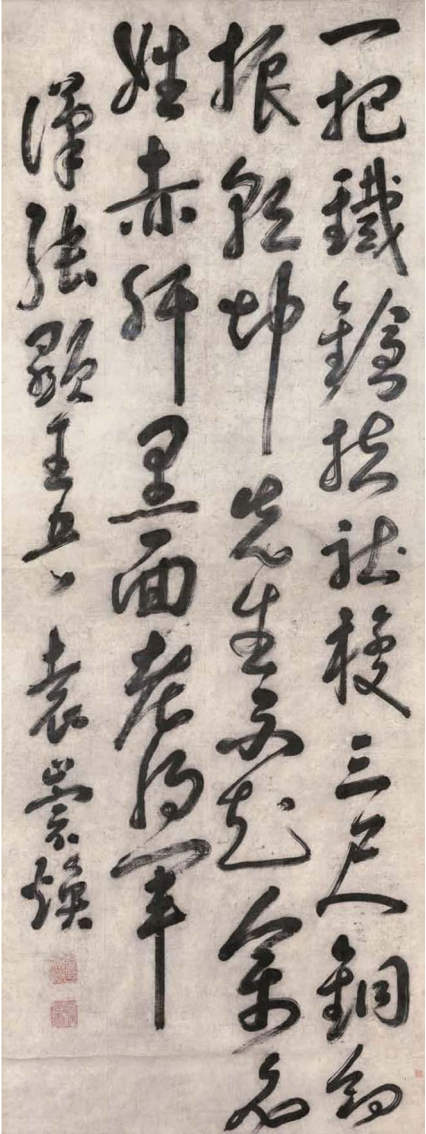 一把鐵鎗扶社稷三尺銅劍
振乾坤先生不起留名
姓赤肝黑面老將軍
漢張顯王 袁崇煥